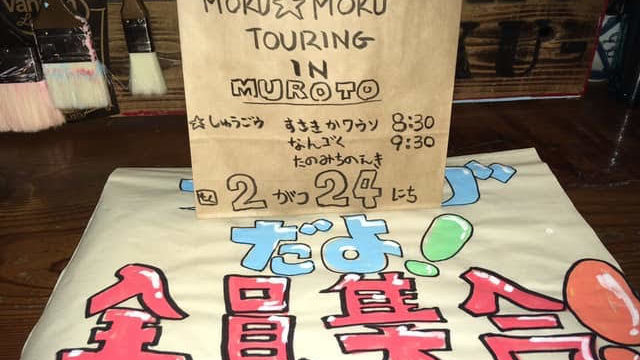 MOKU☆MOKU
TOURING
IN
MUROTO
☆しゅうごう すさきかワウソ 8:30
なんごく 9:30
たのみちのえき
2がつ24にち
だよ!
全員集合